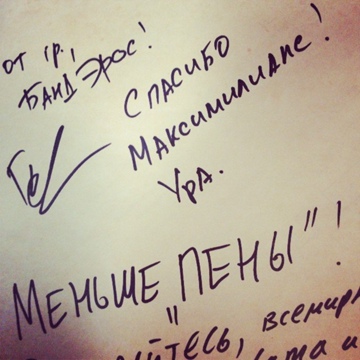 от гр.,
Банд Эрос!
Спасибо
Максимилианс!
Ура.
Меньше "пены"!
всемир